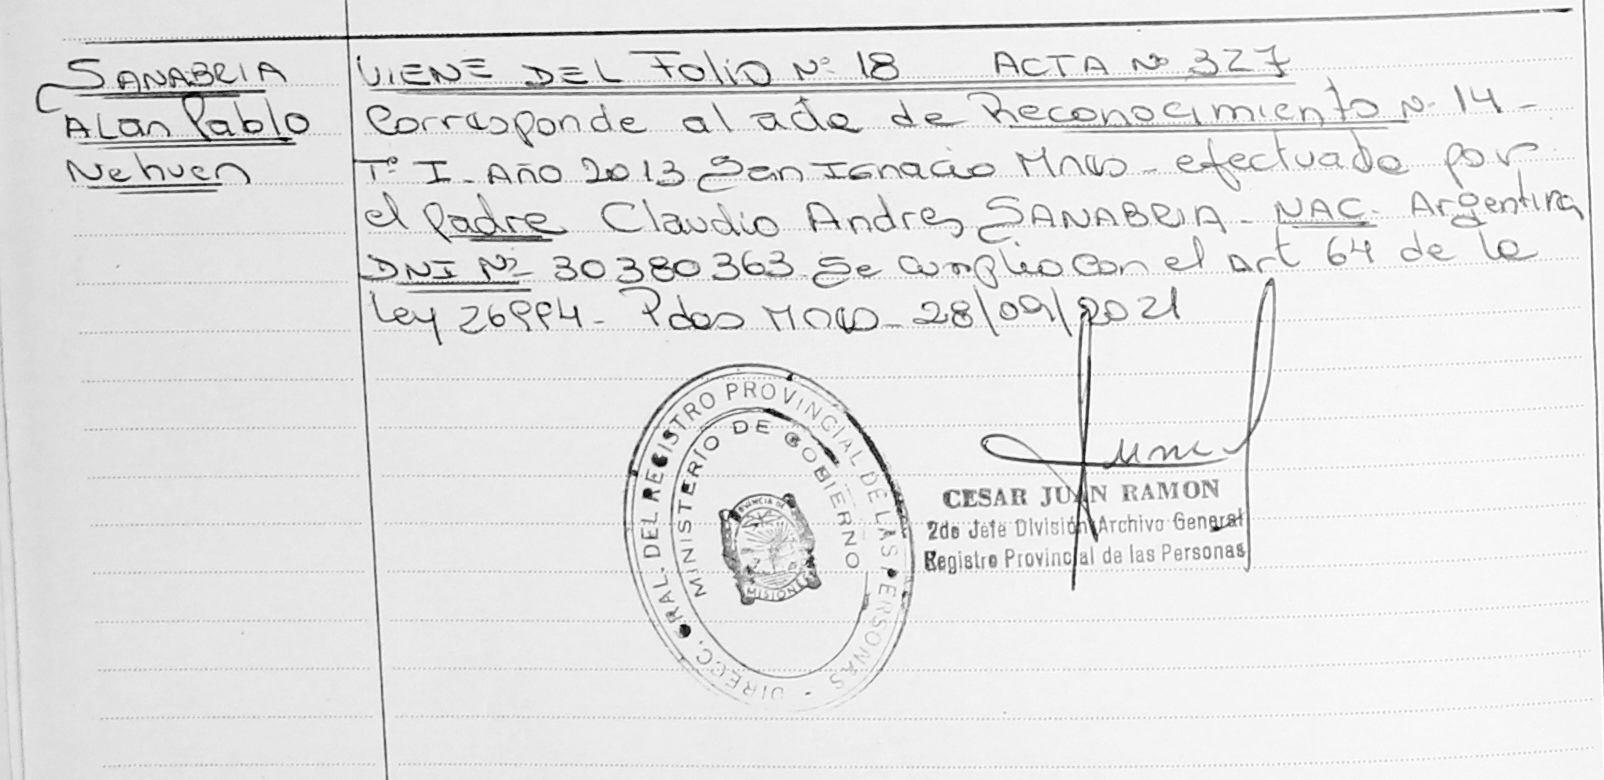 SANABRIA
ALan Pablo
Nehuen
VIENE DEL Folio Nº 18 ACTA Nº 327
Corresponde al acta de Reconocimiento Nº 14 -
Tº I - Año 2013 San Ignacio Mnes - efectuado por
el Padre Claudio Andres SANABRIA - NAC. Argentina
DNI Nº 30380363 Se cumplio con el Art 64 de la
Ley 26994 - Pdas Mnes - 28/09/2021
DIRECC. GRAL. DEL REGISTRO PROVINCIAL DE LAS PERSONAS
MINISTERIO DE GOBIERNO
PROVINCIA DE
MISIONES
CESAR JUAN RAMON
2do Jefe División Archivo General
Registro Provincial de las Personas